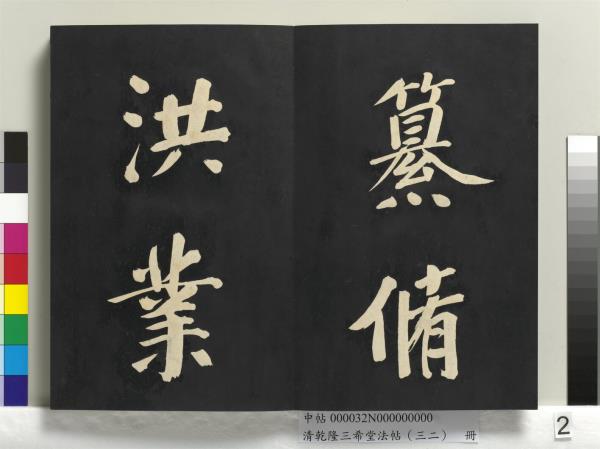 纂脩
洪業
中帖 000032N000000000
清乾隆三希堂法帖(三二) 冊
2